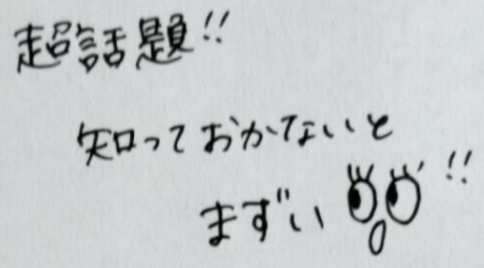 超話題!!
知っておかないと
まずい!!